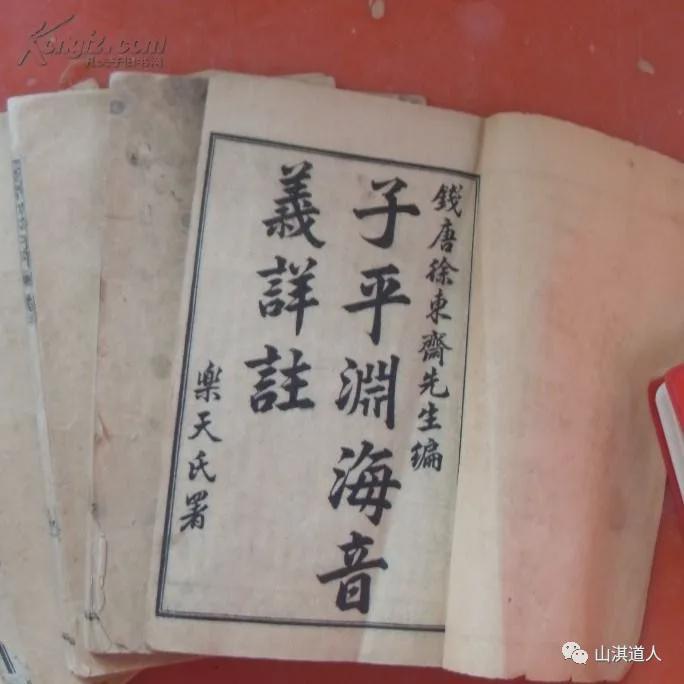 錢唐徐東齋先生編
子平淵海音
義詳註
樂天氏署
Kongfz.com
孔夫子旧书网
山淇道人